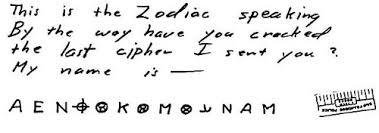 This is the Zodiac speaking
By the way have you cracked
the last cipher I sent you?
My name is —
A E N ⌖ ⊗ K ⊗ M ⊗ ⅃ N A M